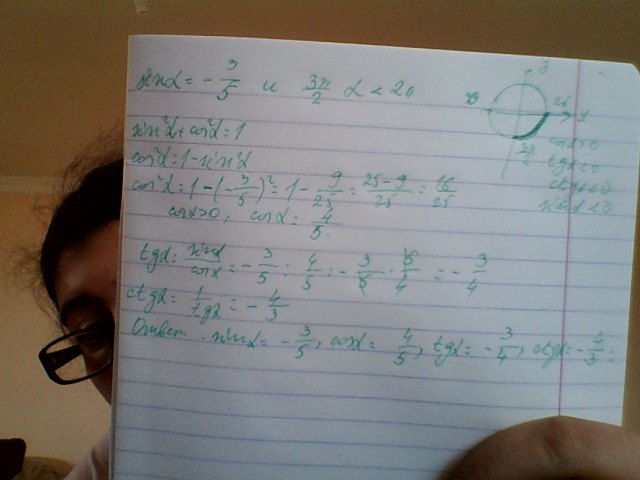 sinα = -3/5 и 3π/2 α < 2π
sin²α + cos²α = 1
cos²α = 1 - sin²α
cos²α = 1 - (-3/5)² = 1 - 9/25 = 25-9/25 = 16/25
cosα > 0, cosα = 4/5.
tgα = sinα/cosα = -3/5 : 4/5 = -3/5 · 5/4 = -3/4
ctgα = 1/tgα = -4/3
Ответ. sinα = -3/5, cosα = 4/5, tgα = -3/4, ctgα = -4/3.
2π
3π/2
cosα > 0
tgα < 0
ctgα < 0
sinα < 0